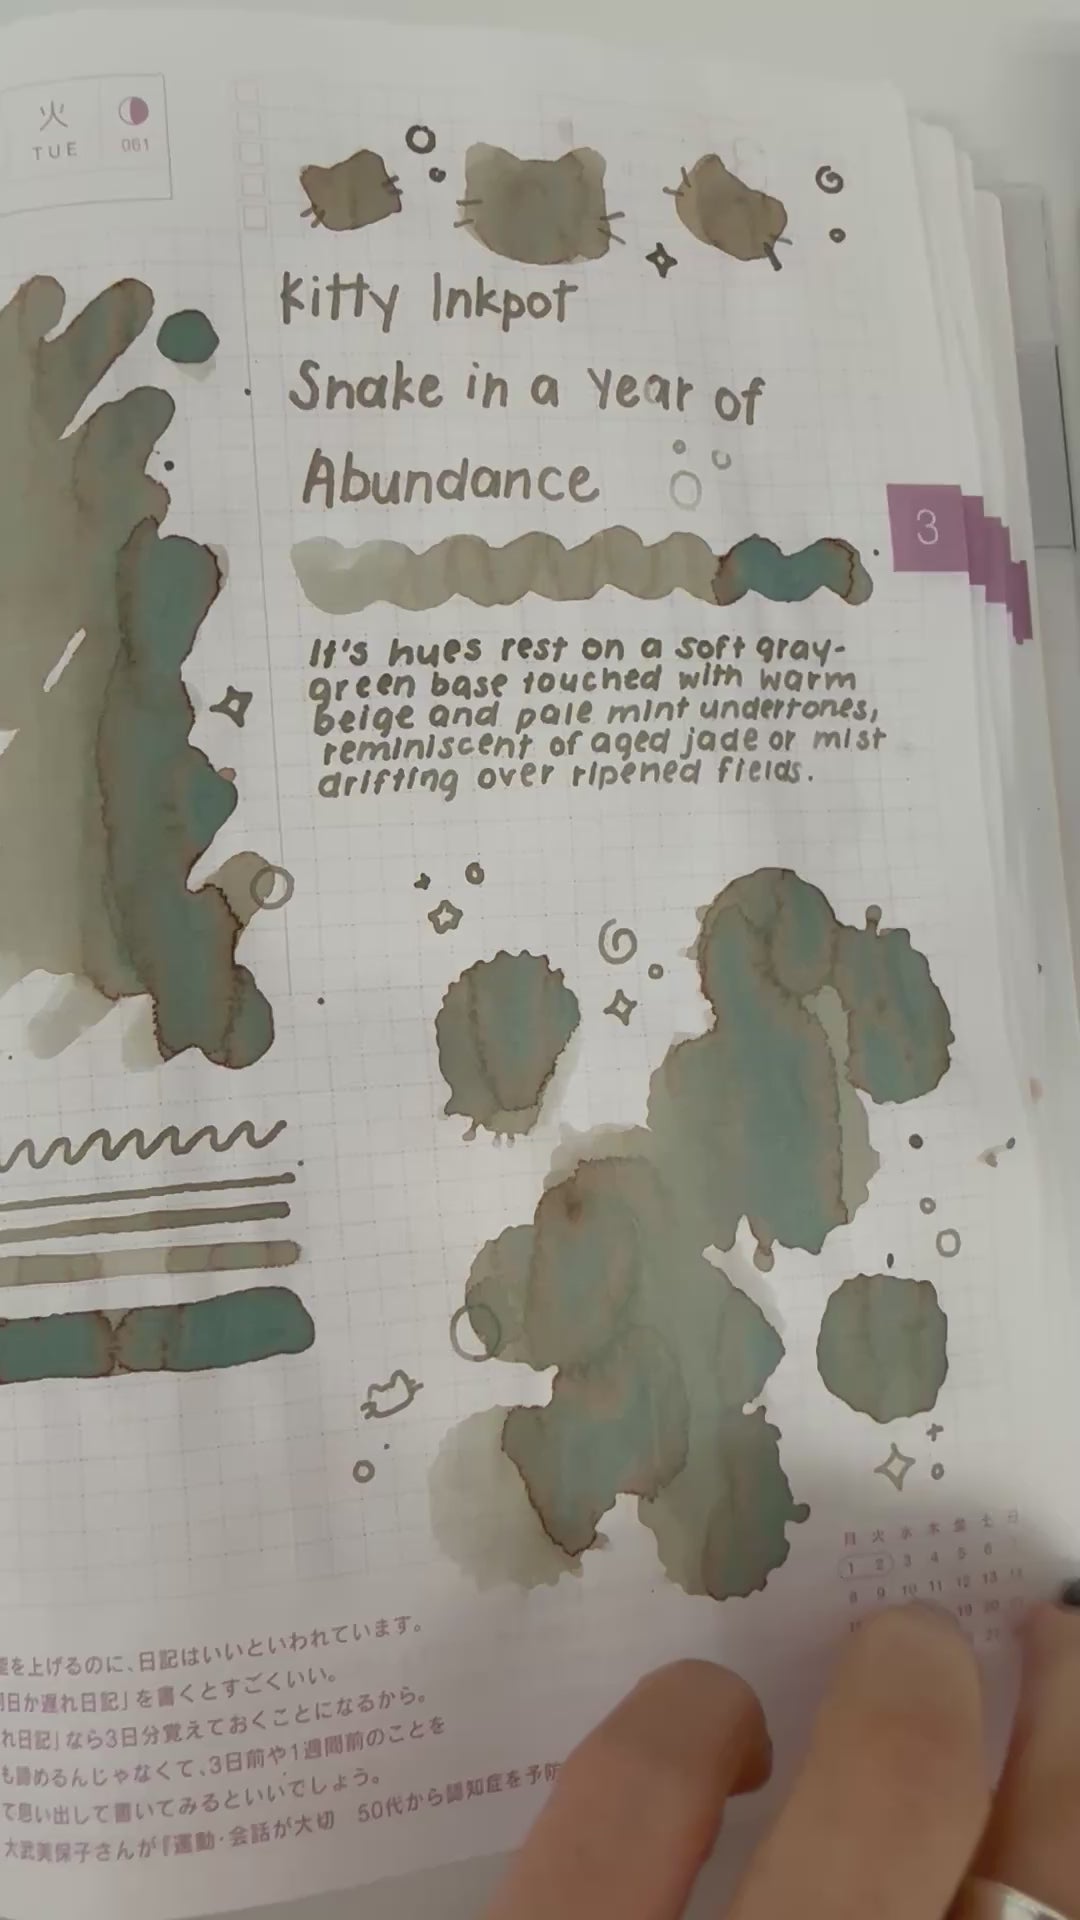 火
TUE
061
Kitty Inkpot
Snake in a Year of
Abundance
3
It's hues rest on a soft gray-
green base touched with warm
beige and pale mint undertones,
reminiscent of aged jade or mist
drifting over ripened fields.
月 火 水 木 金 土 日
1 2 3 4 5 6
8 9 10 11 12 13 14
19 20
を上げるのに、日記はいいといわれています。
日か遅れ日記」を書くとすごくいい。
れ日記」なら3日分覚えておくことになるから。
も諦めるんじゃなくて、3日前や1週間前のことを
て思い出して書いてみるといいでしょう。
大武美保子さんが『運動・会話が大切 50代から認知症を予防